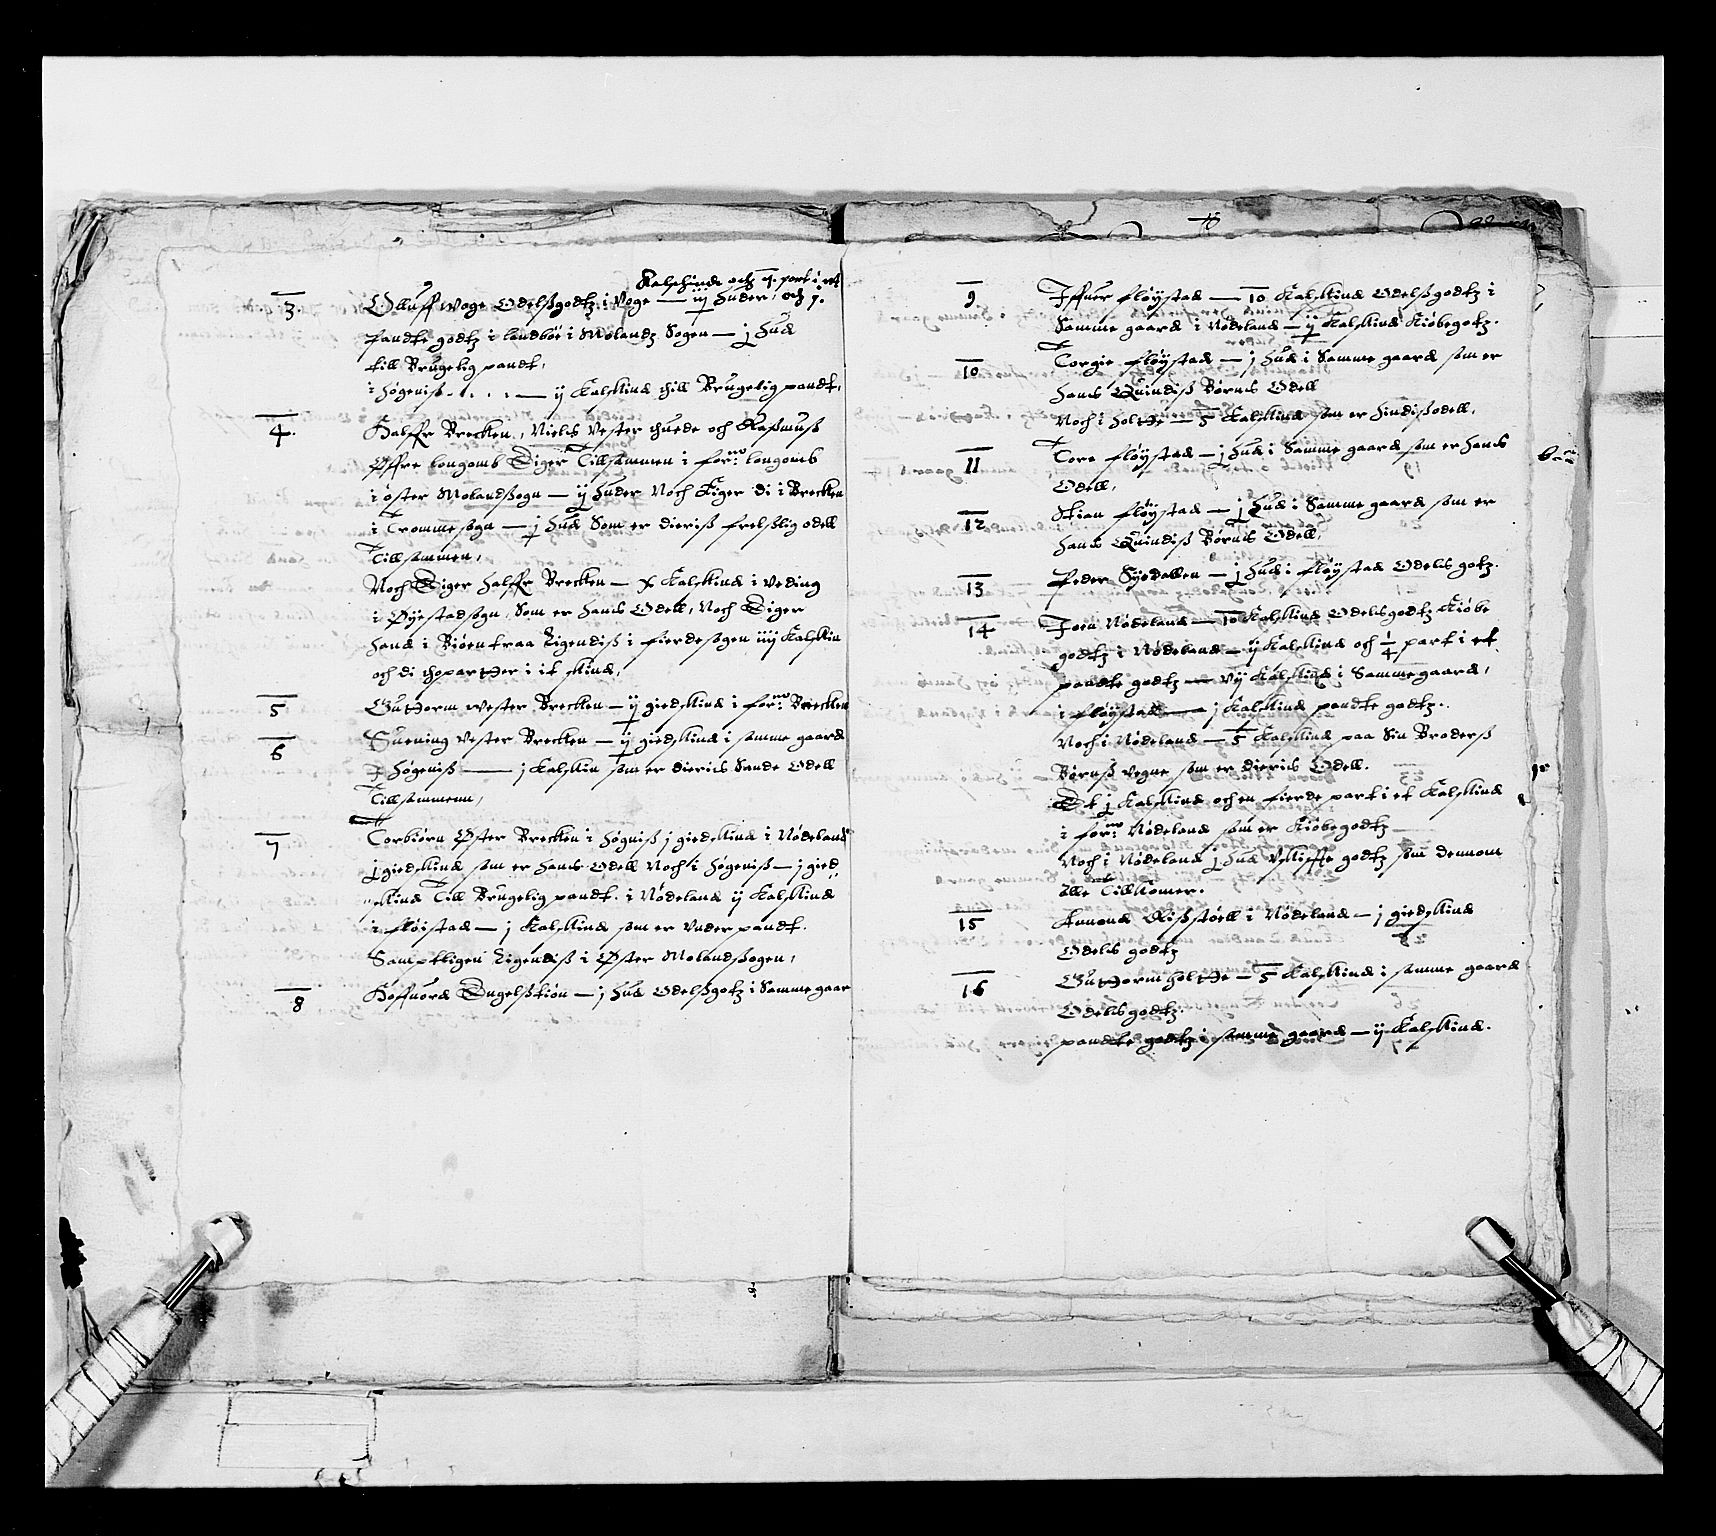 Kalschindt och 1. part i it
3. Olluff Woge Odelsgodtz i Woge — iij Huder, och j.
pandte godtz i landbøe i Molandtz Sogen — j Hud
till Brugelig pandt,
i Høgeniß . . . . — ij Kalskind thill Brugelig pandt,
4. Halffr Brecken, Niels Vester thuede och Raßmuß
Øffre longomb Eiger Tillsammen i for:ne longomb
i øster Molandßogn — ij Huder Noch Eiger di i Brecken
i Tromme sogn — j Hud Som er dieriß frelßlig odell
Tillsammen,
Noch Eiger Halffr Brecken — x Kalskind i Veding
i Øyestadsogn, Som er hans Odell, Noch Eiger
hand i Biøentraa Ligendiß i fierdesogen iiij Kalskin
och di thoparther i it skind,
5 Guthorm Wester Brecken — ij giedskind i for:ne Brecken
6 Suening Vester Brecken — ij giedskind i samme gaard
I Høgeniß — j Kalskin som er dieris Sande Odell
Tillsammenn,
7 Torbiørn Øster Brecken i Høgniß j giedskind i Nødeland
j giedskind som er hans Odell Noch i Høgeniß — j gied,
skind Till Brugelig pandt. i Nødeland ij Kalskind
i fløistad — j Kalskind som er Vnder pandt.
Samptligen Ligendiß i Øster Molandßogen,
8 Hoffuord Engelßtiøn — j Hud Odelßgotz i Samme gaar
9. Iffuer fløystad — 10 Kalskind Odelßgodtz i
Samme gaard i Nødeland — ij Kalskind Kiøbegotz.
10 Torgie fløystad — j Hud i Samme gaard som er
hans Quindiß Børns Odell
Noch i holthe — 5 Kalskind som er hindiß odell,
11 Tore fløystad — j Hud i Samme gaard som er hans
Odell,
12 Stian fløystad — j Hud i Samme gaard som er
hans Quindiß Børns Odell,
13 Peder Syedallen — j Hud i fløystad Odels gotz.
14 Joen Nødeland — 10 Kalskind Odelsgodtz Kiøbe
godtz i Nødeland — ij Kalskind och 1/4 part i et
pandte godtz — vij Kalskind i Sammegaard,
i fløystad — j Kalskind pandte godtz.
Noch i Nødeland — 5 Kalskind paa Sin Broderß
Børnß Vegne som er dieris Odell.
Et j Kalskind och en fierde part i et Kalskind
i for:ne Nødeland som er Kiøbegodtz
Noch i Nødeland j Hud Vskiffte godtz som dennom
alle Tillkomer.
15 Amond Rißstøell i Nødeland — j giedskind
Odels godtz
16 Guthorm holthe — 5 Kalskind i samme gaard
Odelsgodtz.
pandte godtz i samme gaard — ij Kalskind.